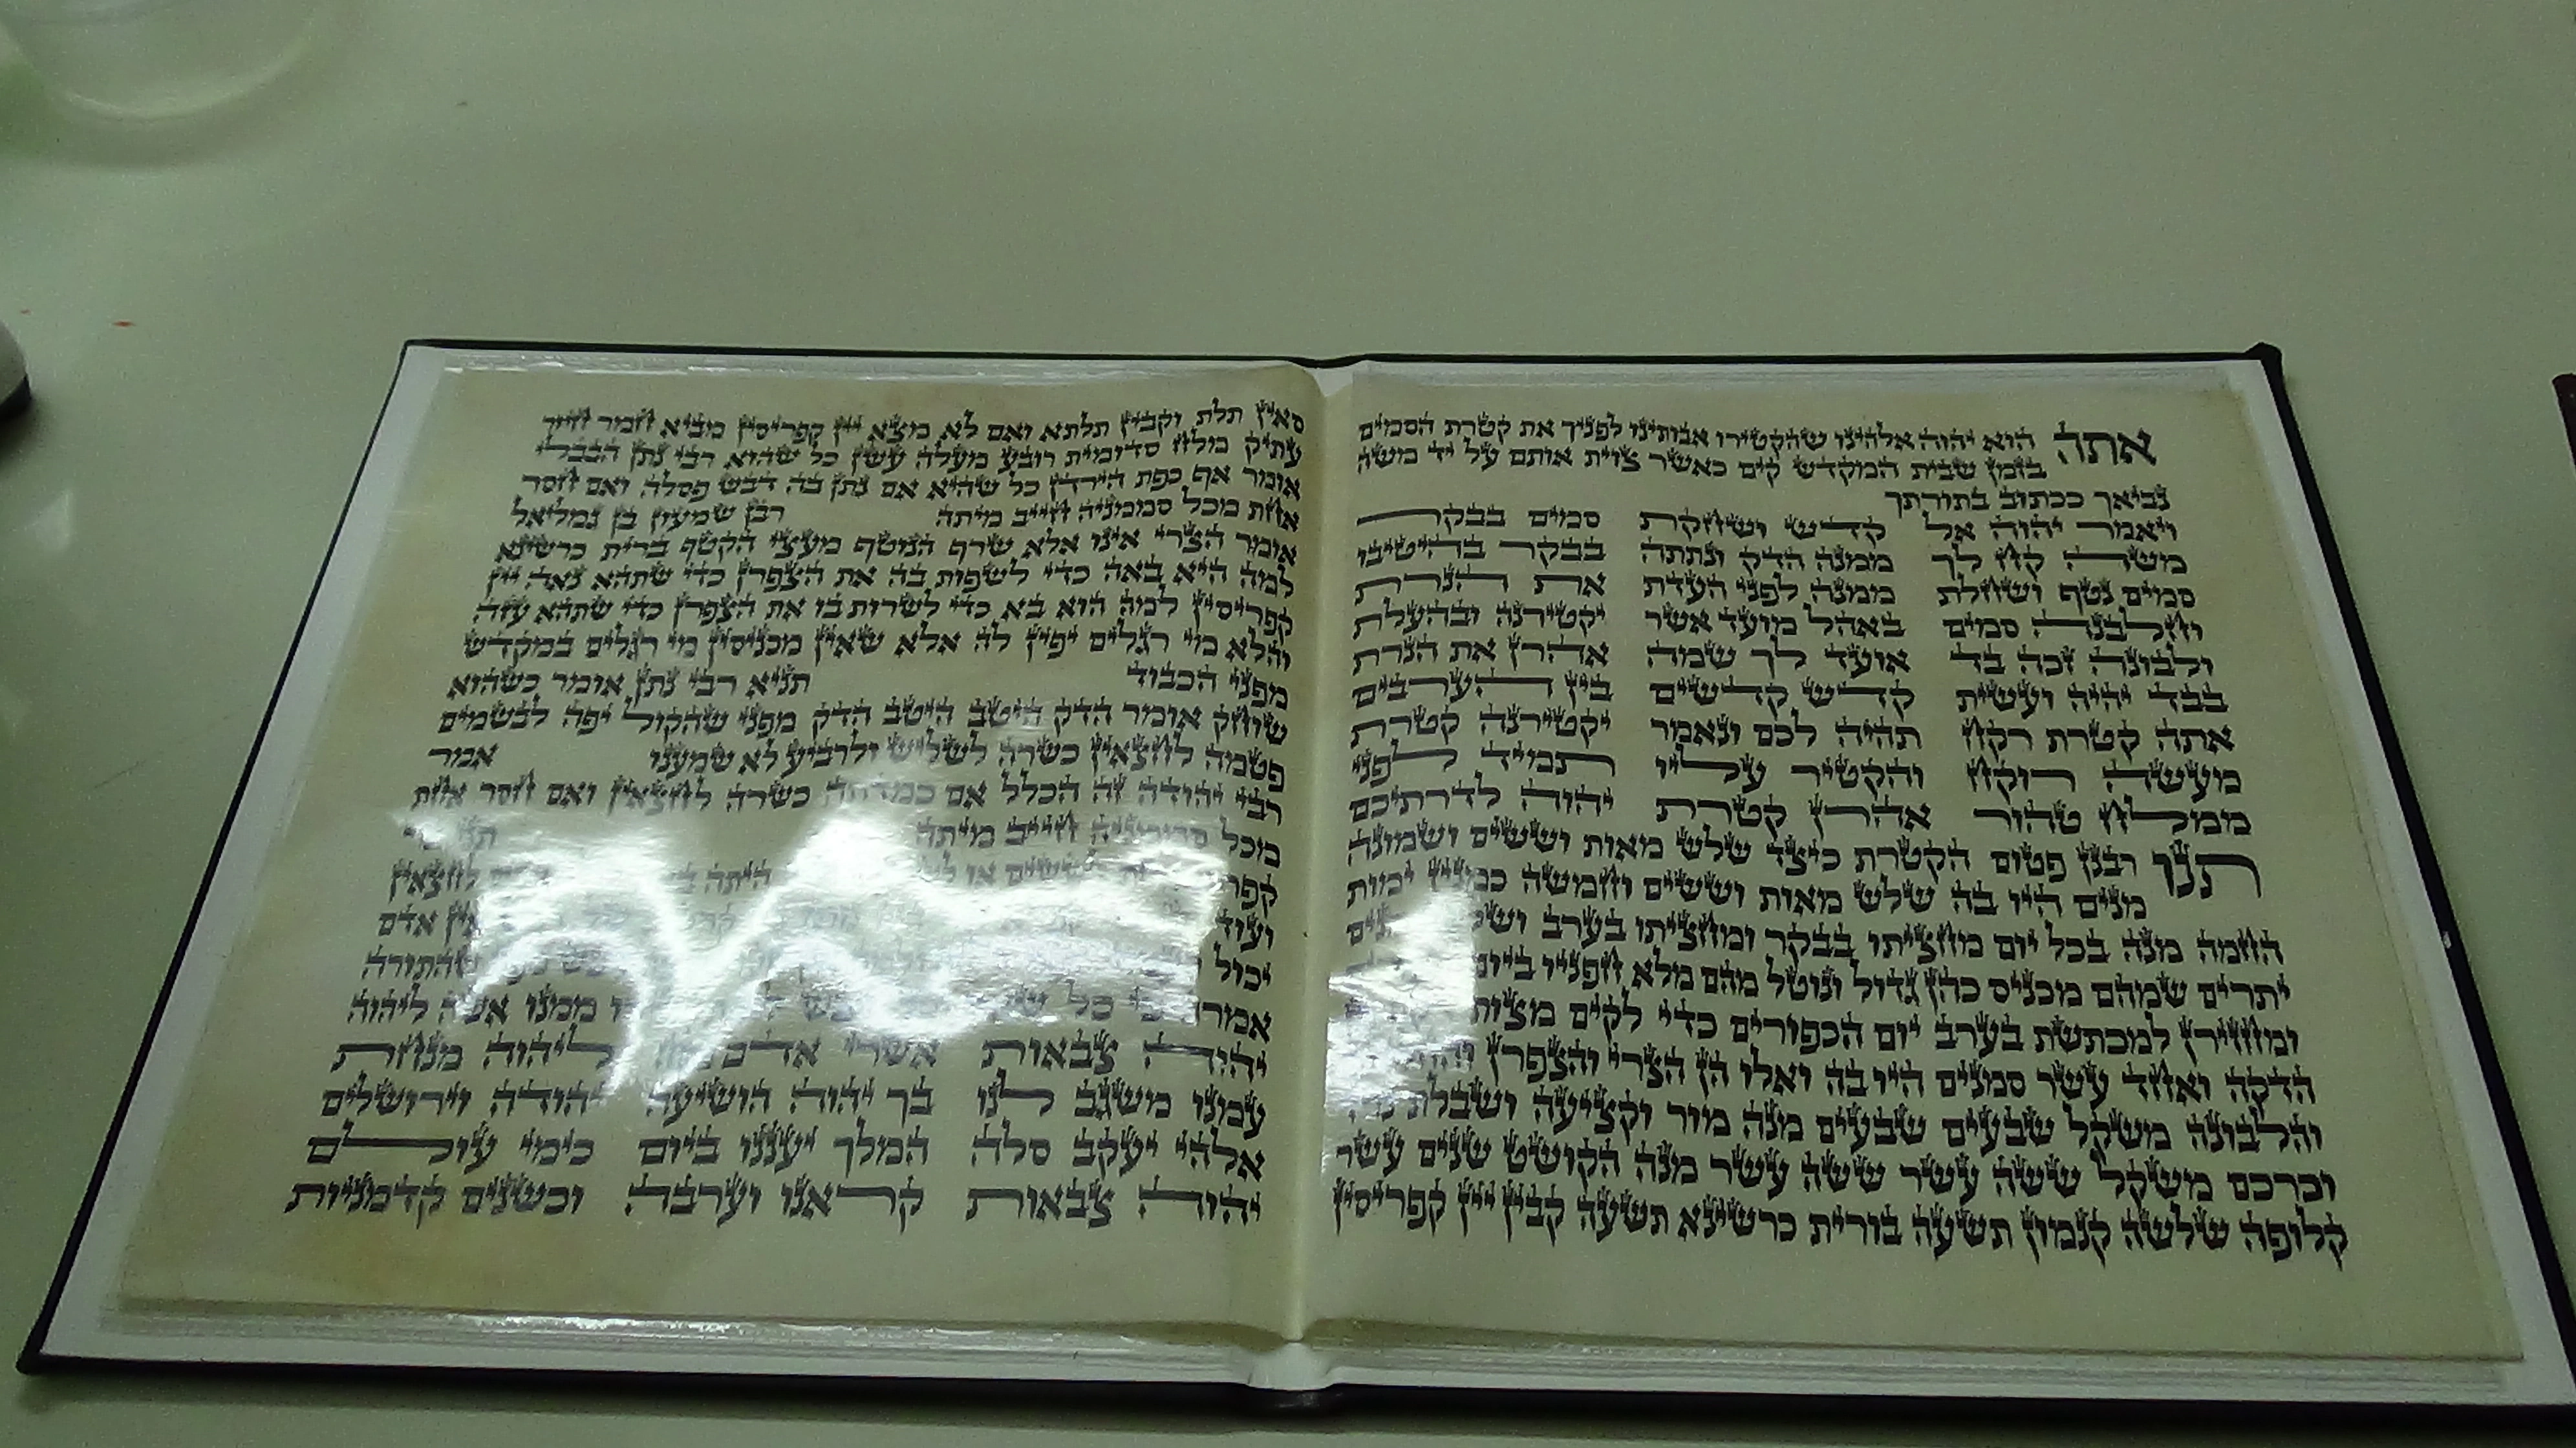 אתה הוא יהוה אלהינו שהקטירו אבותינו לפניך את קטרת הסמים
בזמן שבית המקדש קים כאשר צוית אותם על יד משה
נביאך ככתוב בתורתך
ויאמר יהוה אל קדש ושחקת סמים בבקר
משה קח לך ממנה הדק ונתתה בבקר בהיטיבו
סמים נטף ושחלת ממנה לפני העדת את הנרת
וחלבנה סמים באהל מועד אשר יקטירנה ובהעלת
ולבונה זכה בד אועד לך שמה אהרן את הנרת
בבד יהיה ועשית קדש קדשים בין הערבים
אתה קטרת רקח תהיה לכם ונאמר יקטירנה קטרת
מעשה רוקח והקטיר עליו תמיד לפני
ממלח טהור אהרן קטרת יהוה לדרתיכם
תנו רבנן פטום הקטרת כיצד שלש מאות וששים ושמונה
מנים היו בה שלש מאות וששים וחמשה כמנין ימות
החמה מנה בכל יום מחציתו בבקר ומחציתו בערב
יתרים שמהם מכניס כהן גדול ונוטל מהם מלא חפניו ביום
ומחזירן למכתשת בערב יום הכפורים כדי לקים מצות
הדקה ואחד עשר סמנים היו בה ואלו הן הצרי והצפרן
והלבונה משקל שבעים שבעים מנה מור וקציעה ושבלת
וכרכם משקל ששה עשר ששה עשר מנה הקושט שנים עשר
קלופה שלשה קנמון תשעה בורית כרשינא תשעה קבין יין קפריסין
סאין תלת וקבין תלתא ואם לא מצא יין קפריסין מביא חמר חיור
עתיק מלח סדומית רובע מעלה עשן כל שהוא רבי נתן הבבלי
אומר אף כפת הירדן כל שהיא אם נתן בה דבש פסלה ואם חסר
אחת מכל סממניה חייב מיתה רבן שמעון בן גמליאל
אומר הצרי אינו אלא שרף הנוטף מעצי הקטף ברית כרשינא
למה היא באה כדי לשפות בה את הצפרן כדי שתהא נאה יין
קפריסין למה הוא בא כדי לשרות בו את הצפרן כדי שתהא עזה
והלא מי רגלים יפין לה אלא שאין מכניסין מי רגלים במקדש
מפני הכבוד תניא רבי נתן אומר כשהוא
שוחק אומר הדק היטב היטב הדק מפני שהקול יפה לבשמים
פטמה לחצאין כשרה לשליש ולרביע לא שמענו אמר
רבי יהודה זה הכלל אם כמדתה כשרה לחצאין ואם חסר אחת
מכל סממניה חייב מיתה
היתה לחצאין
ועוד אדם
יכול שהתורה
אמרה כל ממנו אשה ליהוה
יהוה צבאות אשרי אדם ליהוה מנחת
עמנו משגב לנו בך יהוה הושיעה יהודה וירושלים
אלהי יעקב סלה המלך יעננו ביום כימי עולם
יהוה צבאות קראנו וערבה וכשנים קדמניות